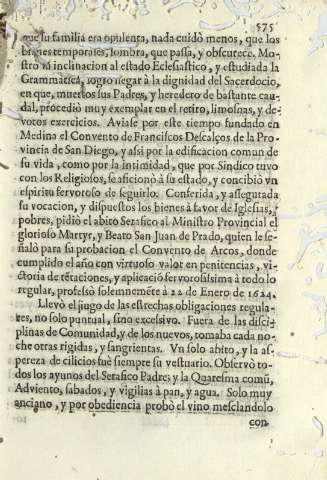 575
que su familia era opulenta, nada cuidò menos, que los
bienes temporales, sombra, que passa, y obscurece. Mo-
strò su inclinacion al estado Eclesiastico, y estudiada la
Grammatica, logro llegar à la dignidad del Sacerdocio,
en que, muertos sus Padres, y heredero de bastante cau-
dal, procediò muy exemplar en el retiro, limosnas, y de-
votos exercicios. Aviase por este tiempo fundado en
Medina el Convento de Franciscos Descalços de la Pro-
vincia de San Diego, y assi por la edificacion comun de
su vida, como por la intimidad, que por Sindico tuvo
con los Religiosos, se aficionò à su estado, y concibiò vn
espiritu fervoroso de seguirlo. Conferida, y assegurada
su vocacion, y dispuestos los bienes à favor de Iglesias, y
pobres, pidiò el abito Serafico al Ministro Provincial el
glorioso Martyr, y Beato San Juan de Prado, quien le se-
ñalò para su probacion el Convento de Arcos, donde
cumplido el año con virtuoso valor en penitencias, vi-
ctoria de tẽtaciones, y aplicaciõ fervorosissima à todo lo
regular, professò solemnemẽte à 22 de Enero de 1624.
Llevò el jugo de las estrechas obligaciones regula-
res, no solo puntual, sino excessivo. Fuera de las disci-
plinas de Comunidad, y de los nuevos, tomaba cada no-
che otras rigidas, y sangrientas. Vn solo abito, y la as-
pereza de cilicios fuè siempre su vestuario. Observò to-
dos los ayunos del Serafico Padre, y la Quaresma comũ,
Adviento, sabados, y vigilias à pan, y agua. Solo muy
anciano, y por obediencia probò el vino mesclandolo
con